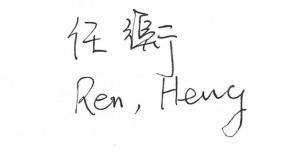 任 衡
Ren, Heng